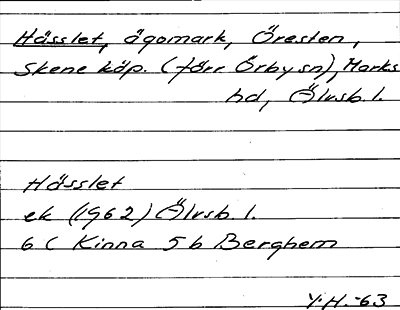 Hässlet, ägomark, Öresten,
Skene köp. (förr Örby sn), Marks
hd, Älvsb. l.
Hässlet
ek (1962) Älvsb. l.
6 C Kinna 5 b Berghem
Y.H.-63